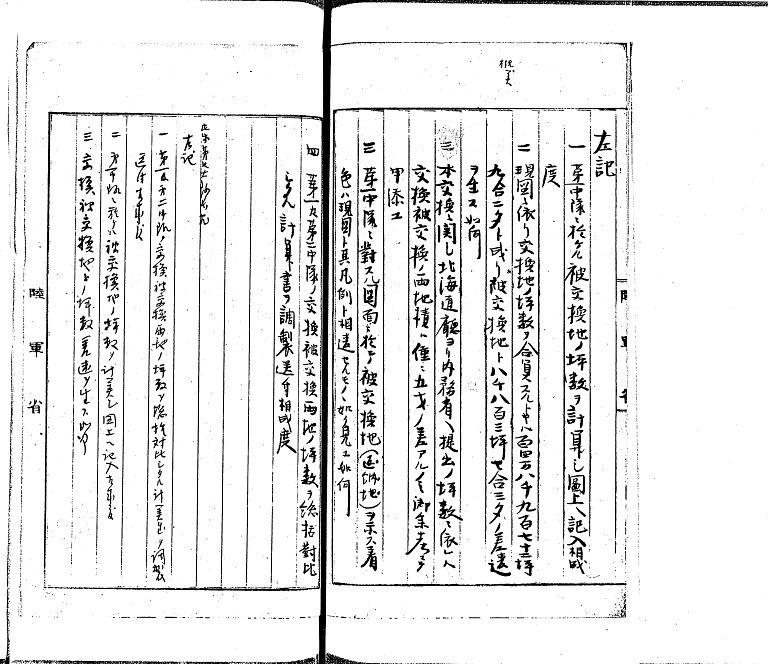 左記
一 第一中隊ニ於ケル被交換地ノ坪数ヲ計算シ圖上ヘ記入相成
度
二 現図ニ依リ交換地ノ坪数ヲ合算スルトキハ百四万八千九百七十三坪
九合二夕ト成リ被交換地ト八千八百三坪七合三夕ノ差違
ヲ生ス如何
三 本交換ニ関シ北海道廳ヨリ内務省ヘ提出ノ坪数ニ依レハ
交換被交換ノ両地積ニ僅ニ五才ノ差アルノミ御参考迄
甲添エ
三 第一中隊ニ對スル図面ニ於テ被交換地ヲ示ス着
色ハ現図ト其凡例ト相違セルモノヽ如ク見ユ如何
四 第一及第二中隊ノ交換被交換両地ノ坪数ヲ総括對比
セル計算書ヲ調製送付相成度
左記
一 第一及第二中隊ノ交換被交換両地ノ坪数ヲ総括対比シタル計算書ヲ調製
送付
二 被交換地ノ坪数ヲ計算シ図上ヘ記入
三 交換被交換地トノ坪数差違ヲ生ス如何
陸軍省
陸軍省